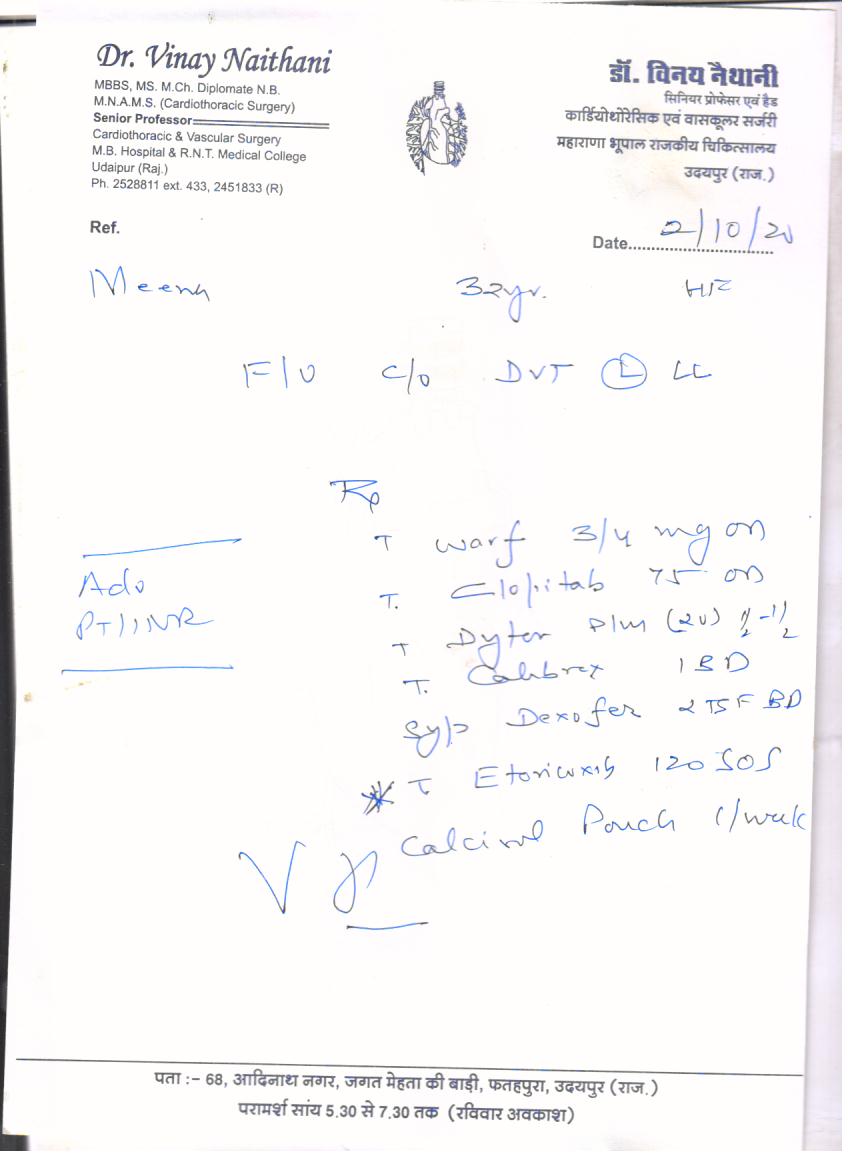 Dr. Vinay Naithani
MBBS, MS. M.Ch. Diplomate N.B.
M.N.A.M.S. (Cardiothoracic Surgery)
Senior Professor
Cardiothoracic & Vascular Surgery
M.B. Hospital & R.N.T. Medical College
Udaipur (Raj.)
Ph. 2528811 ext. 433, 2451833 (R)
डॉ. विनय नैथानी
सिनियर प्रोफेसर एवं हैड
कार्डियोथोरेसिक एवं वासकूलर सर्जरी
महाराणा भूपाल राजकीय चिकित्सालय
उदयपुर (राज.)
Ref.
Date 2/10/20
Meena 32yr.
F/U C/O DVT (L) LL
Rp
T warf 3/4 mg on
T. Clopitab 75 on
T Dytor Plus (20) 1/2-1/2
T. 1 BD
Adv
PT/INR
Syp Dexofer 2 TSF BD
* T Etoricoxib 120 SOS
Calcirol Pouch 1/week
पता :– 68, आदिनाथ नगर, जगत मेहता की बाड़ी, फतहपुरा, उदयपुर (राज.)
परामर्श सांय 5.30 से 7.30 तक (रविवार अवकाश)